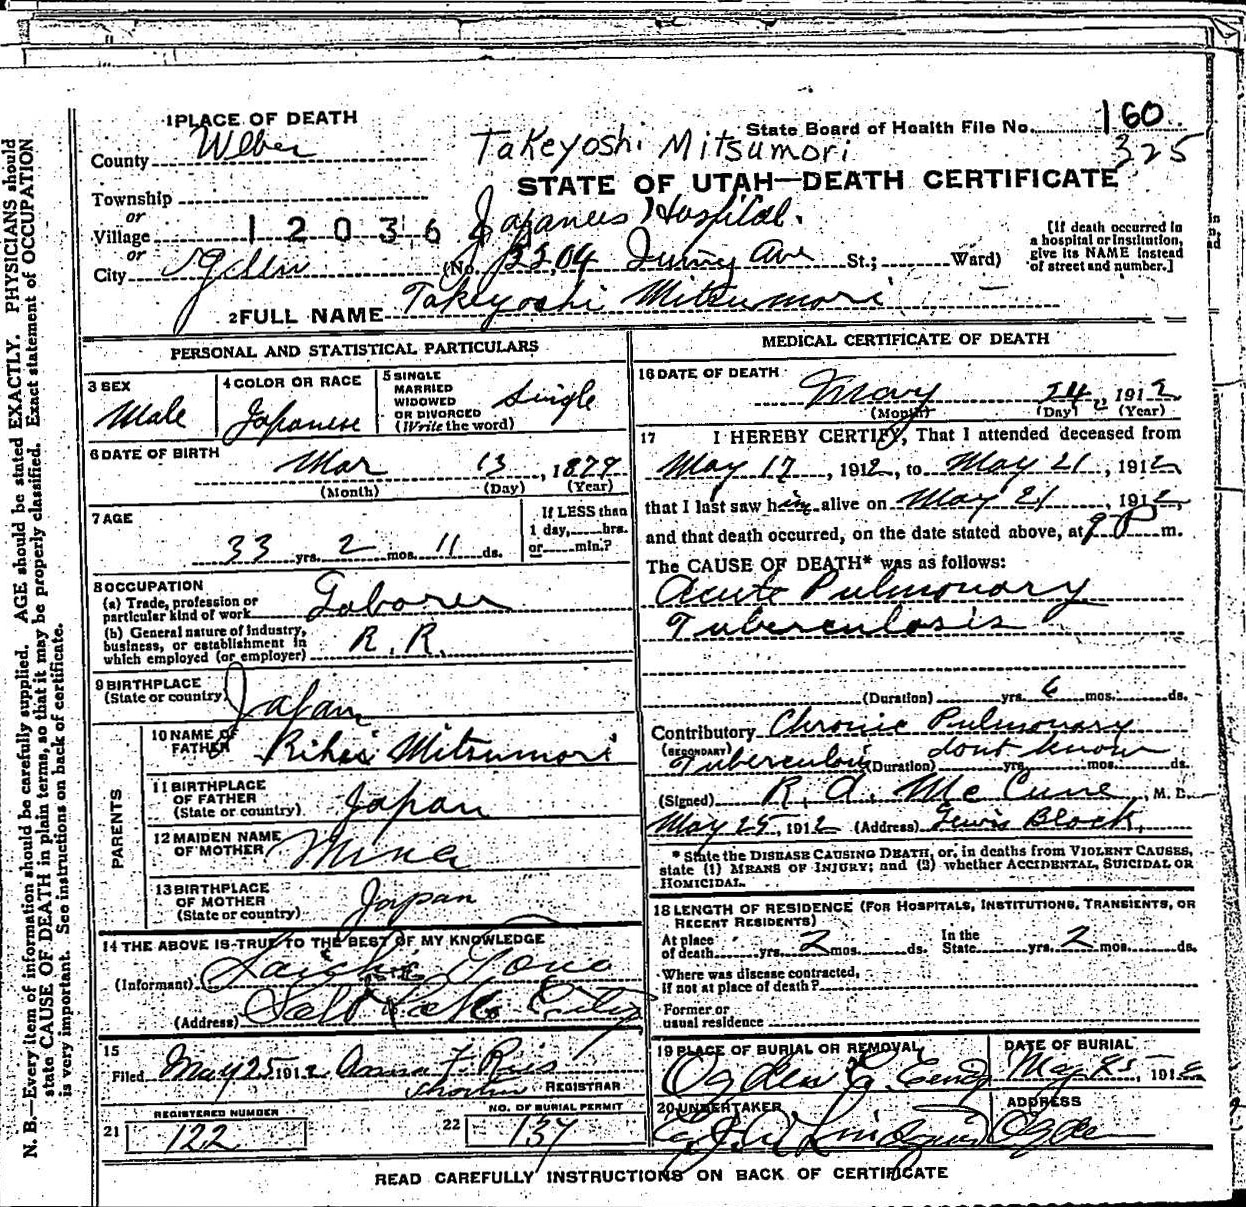 160
1 PLACE OF DEATH
State Board of Health File No.
325
County Weber
Takeyoshi Mitsumori
STATE OF UTAH—DEATH CERTIFICATE
Township
or
Village 12036
Japanees Hospital.
or
City Ogden (No. 2204 Ave St.; Ward)
[If death occurred in
a hospital or institution,
give its NAME instead
of street and number.]
2 FULL NAME Takeyoshi Mitsumori
PERSONAL AND STATISTICAL PARTICULARS
3 SEX
Male
4 COLOR OR RACE
Japanese
5 SINGLE
MARRIED
WIDOWED
OR DIVORCED
(Write the word)
Single
6 DATE OF BIRTH
Mar 13, 1879
(Month) (Day) (Year)
7 AGE
33 yrs. 2 mos. 11 ds.
If LESS than
1 day, hrs.
or min.?
8 OCCUPATION
(a) Trade, profession or
particular kind of work Laborer
(b) General nature of industry,
business, or establishment in
which employed (or employer) R. R.
9 BIRTHPLACE
(State or country) Japan
PARENTS
10 NAME OF
FATHER Rihei Mitsumori
11 BIRTHPLACE
OF FATHER
(State or country) Japan
12 MAIDEN NAME
OF MOTHER Mina
13 BIRTHPLACE
OF MOTHER
(State or country) Japan
14 THE ABOVE IS TRUE TO THE BEST OF MY KNOWLEDGE
(Informant)
(Address) Salt Lake City
15
Filed May 25 1912 Anna F. Ries
REGISTRAR
REGISTERED NUMBER
21 122
NO. OF BURIAL PERMIT
22 137
MEDICAL CERTIFICATE OF DEATH
16 DATE OF DEATH
May 24, 1912
(Month) (Day) (Year)
17 I HEREBY CERTIFY, That I attended deceased from
May 17, 1912, to May 21, 1912,
that I last saw him alive on May 21, 1912,
and that death occurred, on the date stated above, at 9 P m.
The CAUSE OF DEATH* was as follows:
Acute Pulmonary
Tuberculosis
(Duration) yrs. 6 mos. ds.
Contributory Chronic Pulmonary
(SECONDARY)
Tuberculosis (Duration) dont know yrs. mos. ds.
(Signed) R. A. McCune, M. D.
May 25, 1912 (Address) Lewis Block.
* State the DISEASE CAUSING DEATH, or, in deaths from VIOLENT CAUSES,
state (1) MEANS OF INJURY; and (2) whether ACCIDENTAL, SUICIDAL OR
HOMICIDAL.
18 LENGTH OF RESIDENCE (FOR HOSPITALS, INSTITUTIONS, TRANSIENTS, OR
RECENT RESIDENTS)
At place
of death yrs. 2 mos. ds.
In the
State yrs. 2 mos. ds.
Where was disease contracted,
if not at place of death?
Former or
usual residence
19 PLACE OF BURIAL OR REMOVAL
Ogden C. Cemy
DATE OF BURIAL
May 25, 1912
20 UNDERTAKER
Lindquist
ADDRESS
Ogden
READ CAREFULLY INSTRUCTIONS ON BACK OF CERTIFICATE
N. B.—Every item of information should be carefully supplied. AGE should be stated EXACTLY. PHYSICIANS should
state CAUSE OF DEATH in plain terms, so that it may be properly classified. Exact statement of OCCUPATION
is very important. See instructions on back of certificate.